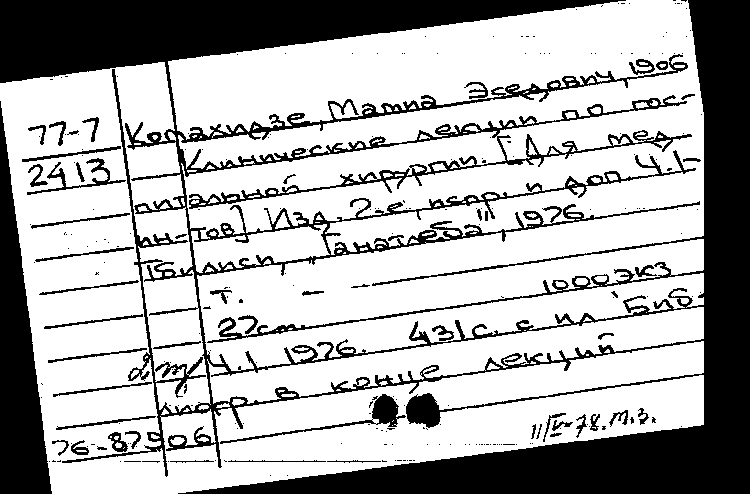 77-7
2413
Комахидзе, Мамиа Эседович, 1906
Клинические лекции по гос-
питальной хирургии. [Для мед
ин-тов]. Изд. 2-е, испр. и доп. Ч.1-
Тбилиси, „Ганатлеба", 1976.
т. — —
1000 экз
27 см.
Ч.1 1976. 431 с. с ил Биб-
лиогр. в конце лекций
76-87906
11/V-78. М.З.